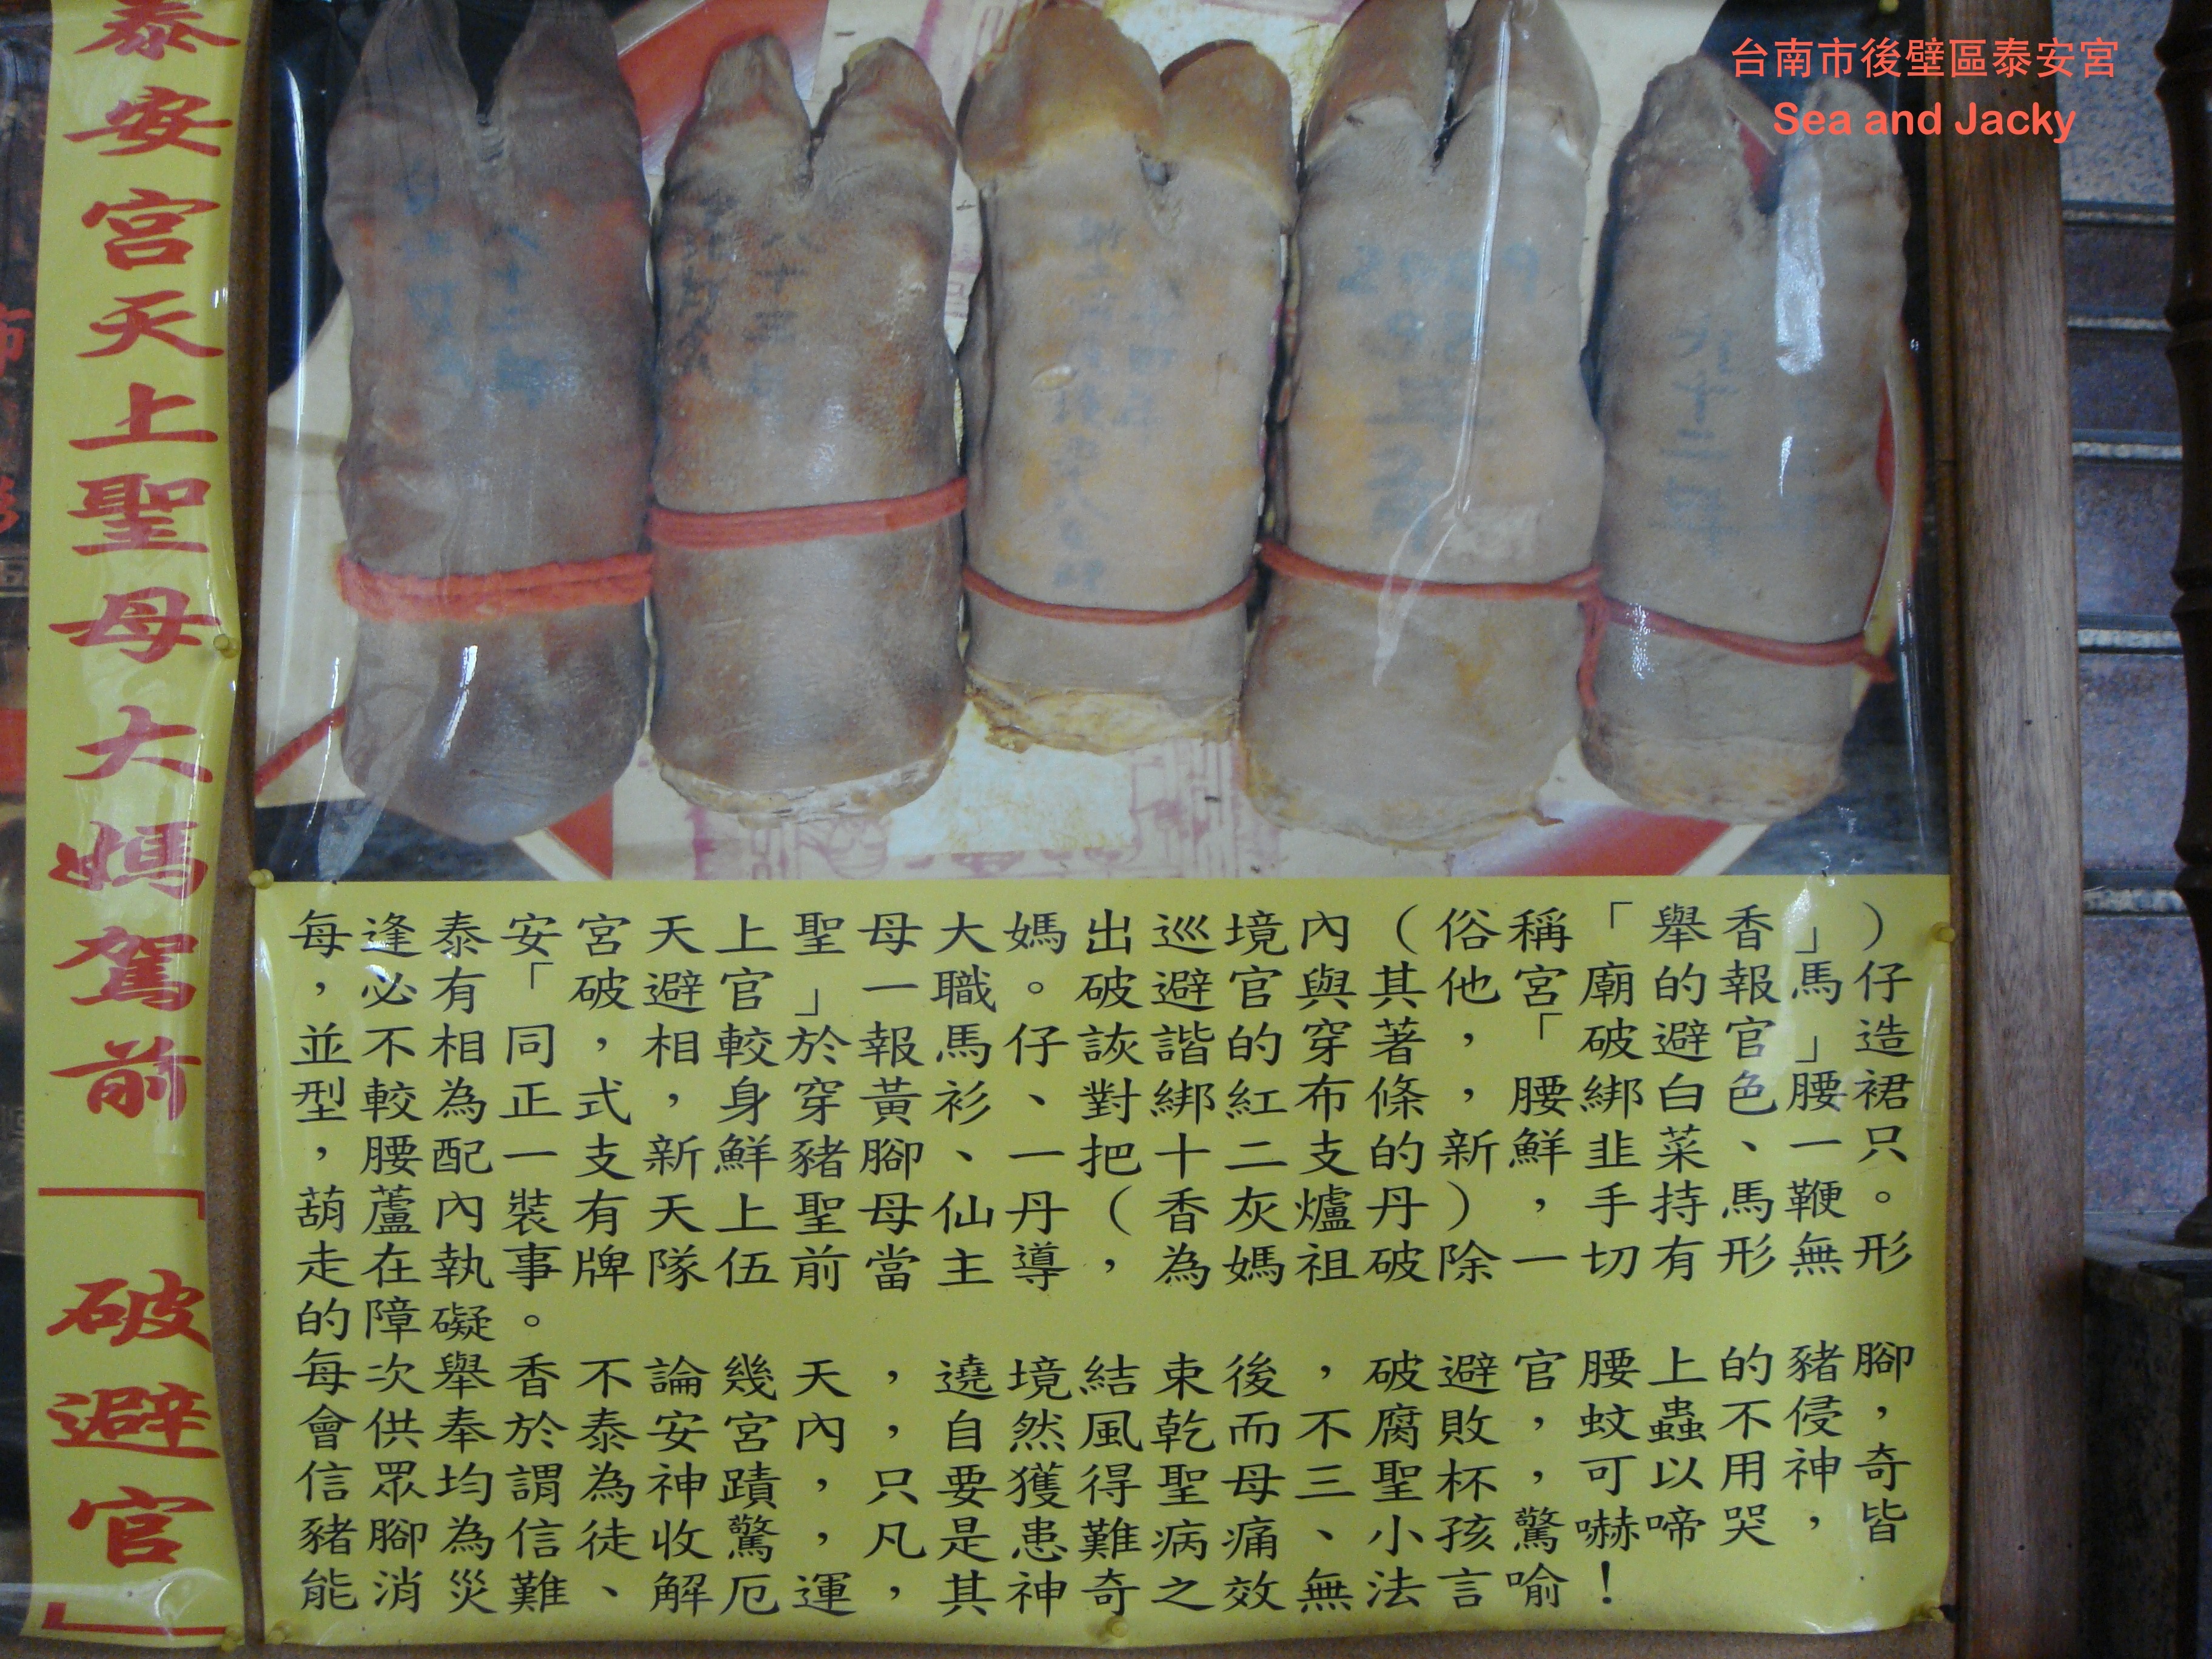 台南市後壁區泰安宮
Sea and Jacky
泰安宮天上聖母大媽駕前「破避官」
2009
六十二年
每逢泰安宮天上聖母大媽出巡境內（俗稱「舉香」）
，必有「破避官」一職。破避官與其他宮廟的報馬仔
並不相同，相較於報馬仔詼諧的穿著，「破避官」造
型較為正式，身穿黃衫、對綁紅布條，腰綁白色腰裙
，腰配一支新鮮豬腳、一把十二支的新鮮韭菜、一只
葫蘆內裝有天上聖母仙丹（香灰爐丹），手持馬鞭。
走在執事牌隊伍前當主導，為媽祖破除一切有形無形
的障礙。
每次舉香不論幾天，遶境結束後，破避官腰上的豬腳
會供奉於泰安宮內，自然風乾而不腐敗，蚊蟲不侵，
信眾均謂為神蹟，只要獲得聖母三聖杯，可以用神奇
豬腳為信徒收驚，凡是患難病痛、小孩驚嚇啼哭，皆
能消災難、解厄運，其神奇之效無法言喻！